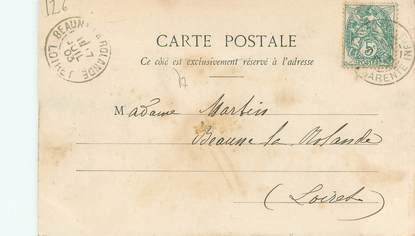 126
BEAUNE LA ROLANDE
LOIRET
CARTE POSTALE
Ce côté est exclusivement réservé à l'adresse
5
Madame Martin
Beaune la Rolande
(Loiret)